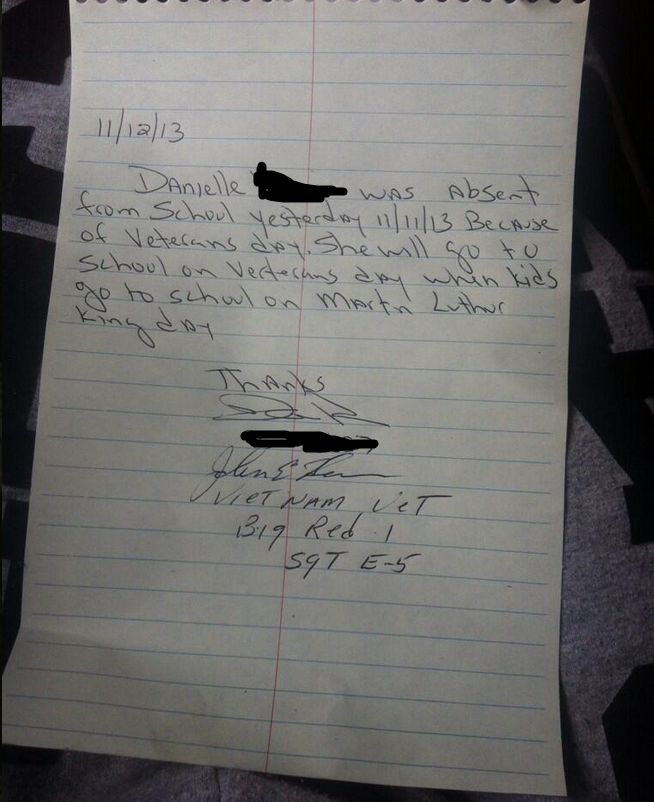 11/12/13
Danielle was Absent
from School yesterday 11/11/13 Because
of Veterans day. She will go to
School on Veterans day when kids
go to school on Martn Luther
King day
Thanks
VIET NAM VeT
Big Red 1
SgT E-5